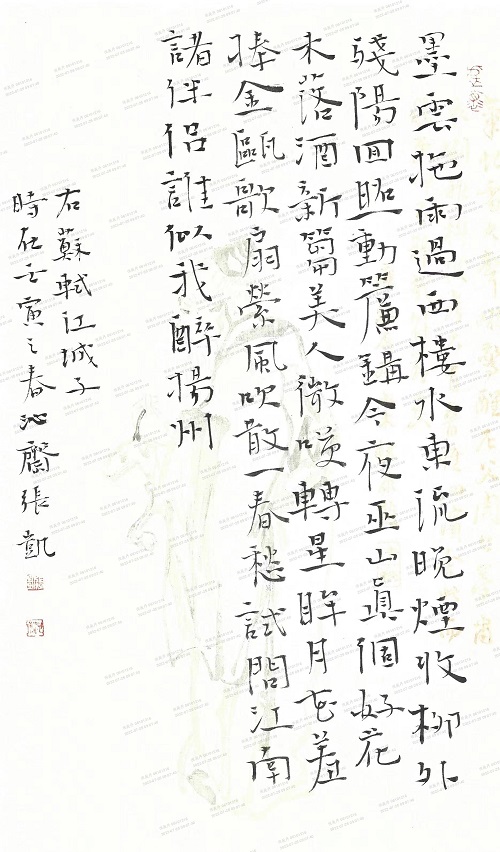 墨雲拖雨過西樓水東流晚煙收柳外
殘陽回照動簾鉤今夜巫山眞個好花
未落酒新篘美人微笑轉星眸月花羞
捧金甌歌扇縈風吹散一春愁試問江南
諸伴侶誰似我醉揚州
右蘇軾江城子
時在壬寅之春沁齋張凱